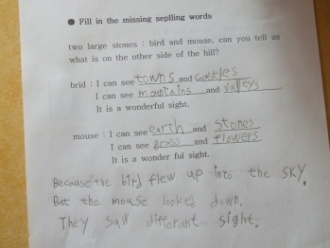 ● Fill in the missing seplling words
two large stones : bird and mouse, can you tell us
what is on the other side of the hill?
brid : I can see towns and castles
I can see mountains and valleys.
It is a wonderful sight.
mouse : I can see earth and stones
I can see grass and flowers
It is a wonder ful sight.
Because the bird flew up into the sky.
But the mouse looked down.
They saw different sight.